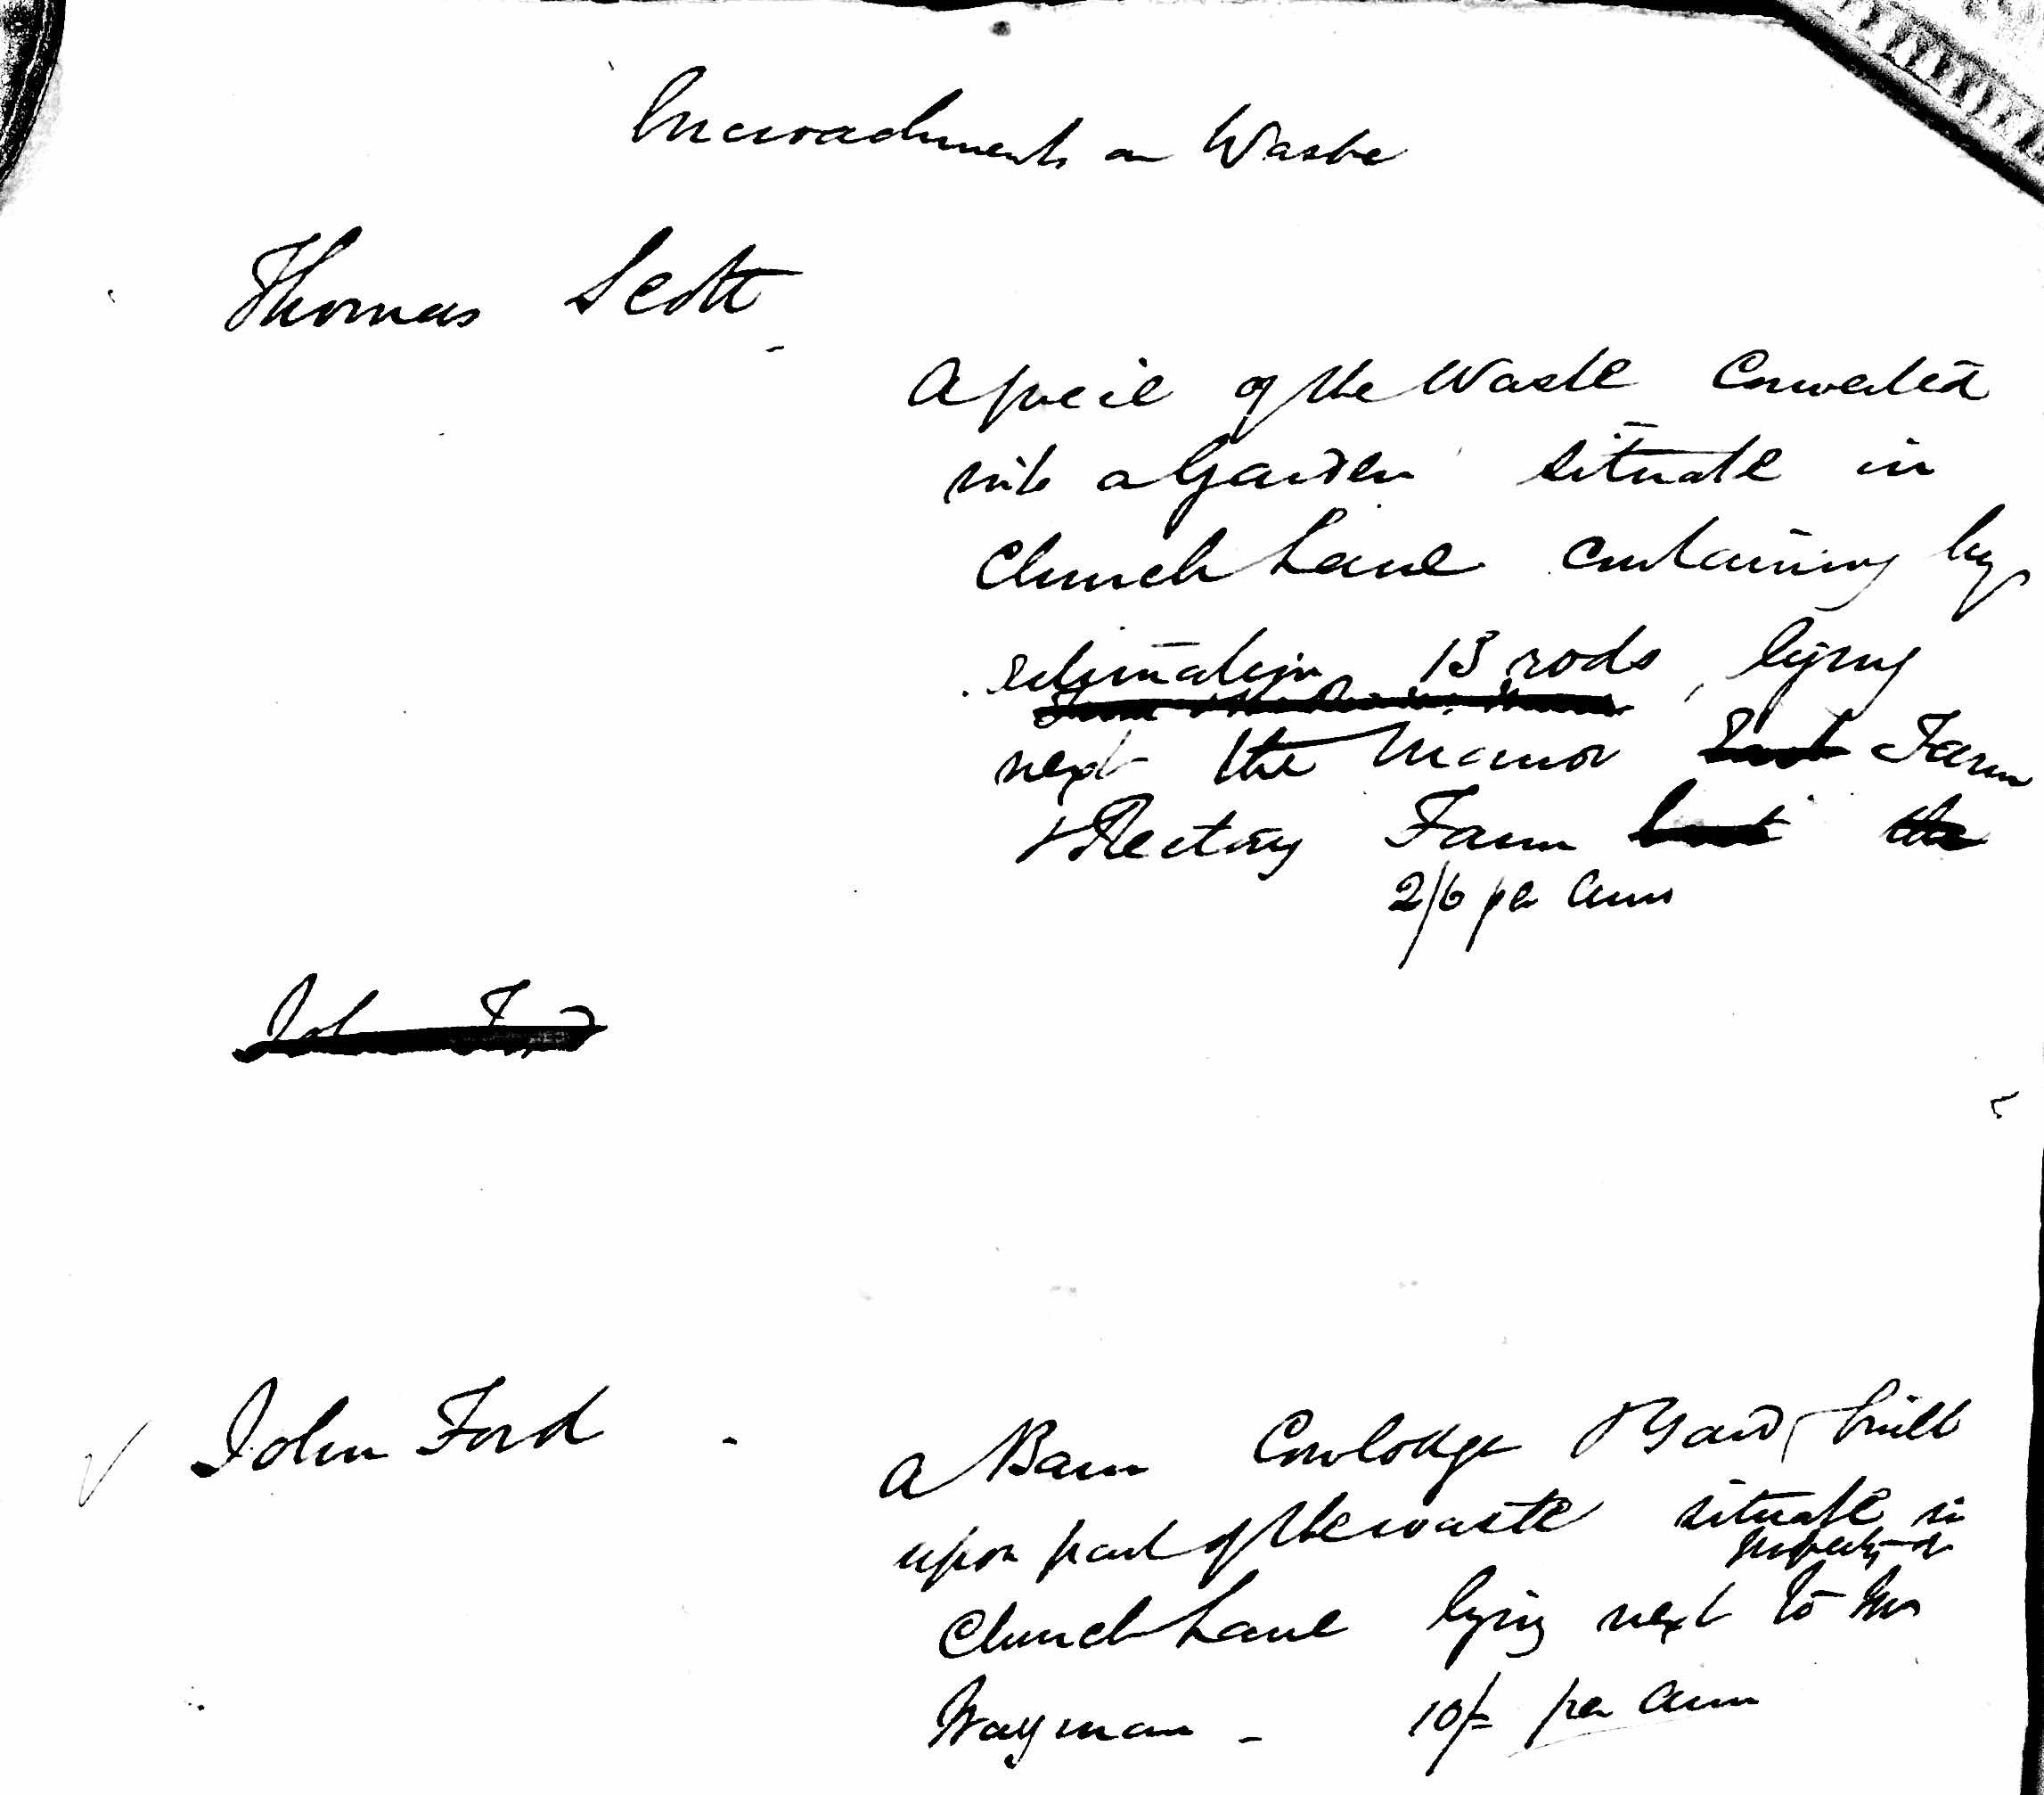 Incroachments on Waste
Thomas Scott
A peice of the Waste Converted
into a Garden situate in
Church Lane containing by
estimation 13 rods, lying
next the Manor Farm
& Rectory Farm
2/6 per Ann
John Ford
John Ford -
A Barn Cowlodge & Yard built
upon part of the waste situate in
property of
Church Lane lying next to Mrs
Wayman - 10/- per Ann